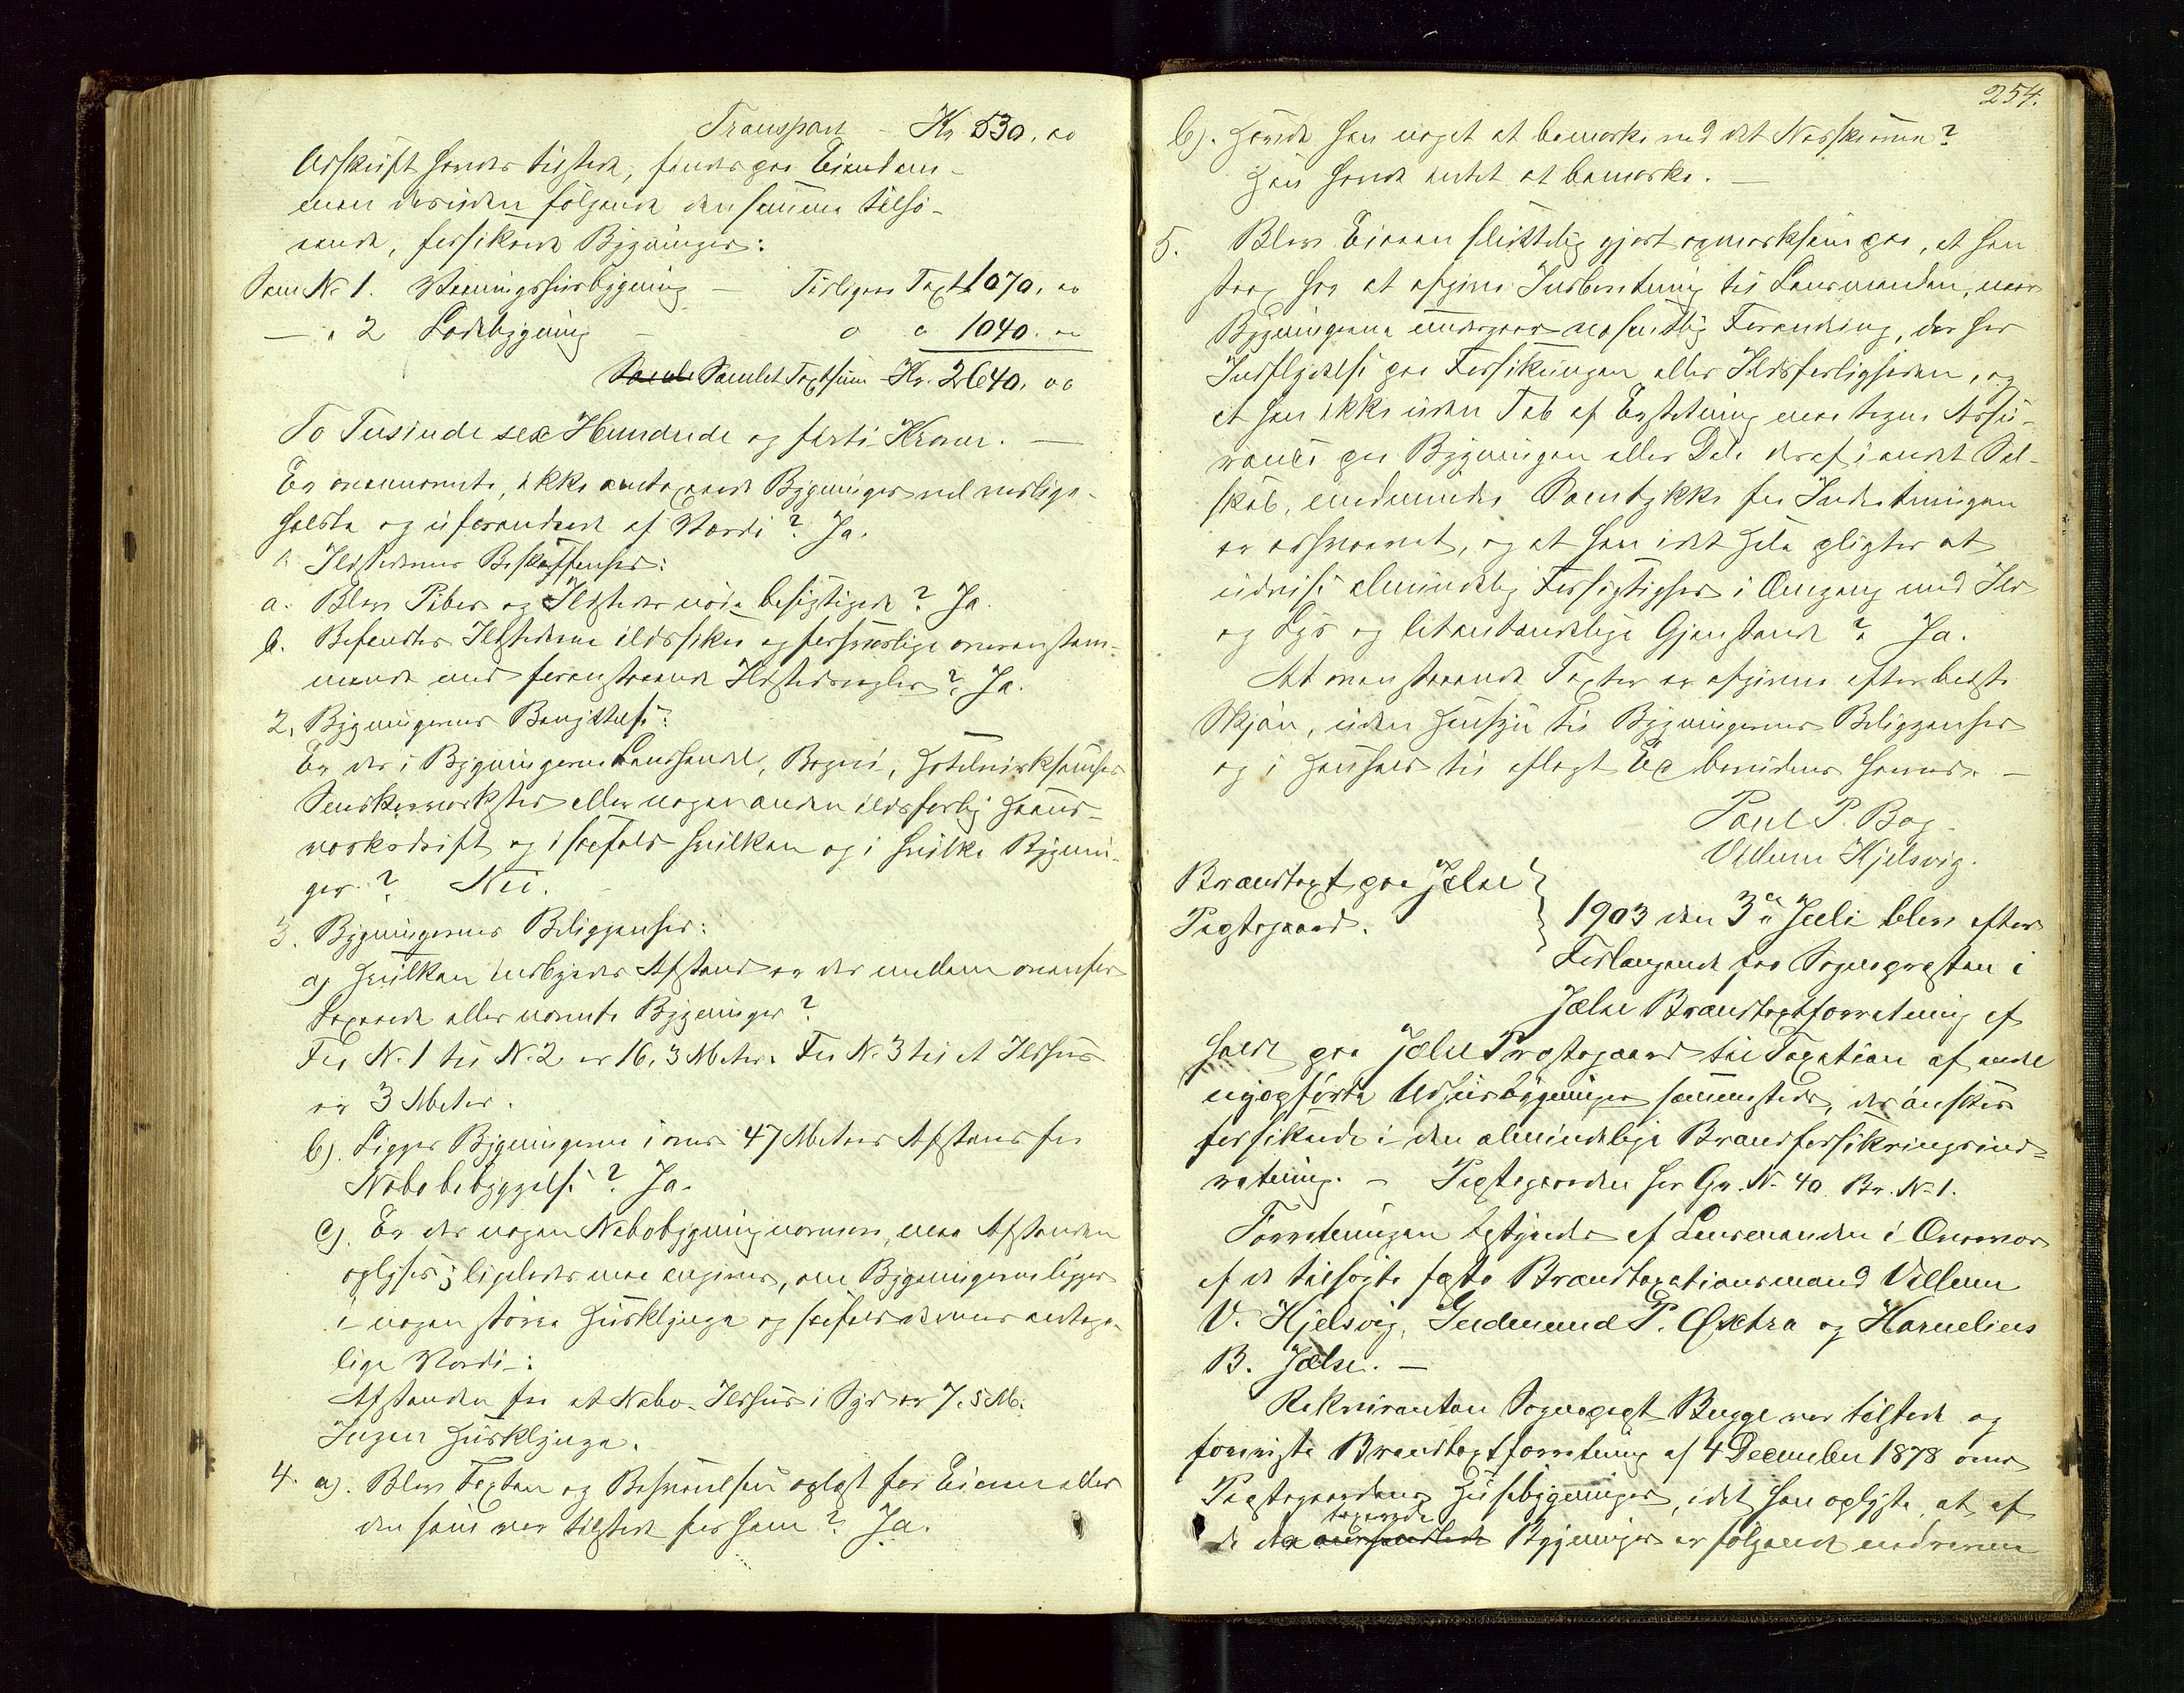 Transport - Kr. 530, oo
Udskrift havdes tilstede, fandes paa Eiendom-
men desuden følgende den samme tilhø-
rende, forsikrede Bygninger:
Som No 1. Vaaningshusbygning - Tidligere Taxt 1070, oo
— " 2 Ladebygning - - " " 1040. oo
Samlet Taxtsum Kr. 2640, oo
To Tusinde sex Hundrede og førti Kroner. —
Er ovennævnte, ikke omtaxerede Bygninger vel vedlige-
holdte og uforandrede af Værdi? Ja.
1. Ildstedernes Beskaffenhed:
a. Blev Piber og Ildsteder nøie besigtigede? Ja.
b. Befandtes Ildstederne ildsikre og forsvarlige overensstem-
mende med foranstaaende Ildstedsregler? Ja.
2, Bygningernes Benyttelse:
Er der i Bygningerne Landhandel, Bageri, Hotelvirksomhed
Snekkerverksted eller nogen anden ildsfarlig Haand-
verksdrift og i saafald hvilken og i hvilke Bygnin-
ger? Nei.
3. Bygningernes Beliggenhed:
a) Hvilken indbyrdes Afstand er der mellem ovenfor
taxerede eller nævnte Bygninger?
Fra No 1 til No 2 er 16,3 Meter. Fra No 3 til et Ildhus
er 3 Meter.
b). Ligger Bygningerne i over 47 Meters Afstand fra
Nabobebyggelse? Ja.
c). Er der nogen Nabobygning nærmere, maa Afstanden
oplyses; ligeledes maa angives, om Bygningerne ligger
i nogen større Husklynge og saafald dennes antage-
lige Værdi:
Afstanden fra et Nabo-Ildhus i Syd er 7,5 M.
Ingen Husklynge.
4. a). Blev Taxten og Beskrivelsen oplæst for Eieren eller
den som var tilstede for ham? Ja.
254.
b). Havde han noget at bemærke ved det Nedskrevne?
Han havde intet at bemærke. —
5. Blev Eieren skriftlig gjort opmerksom paa, at han
strax har at afgive Indberetning til Lensmanden, naar
Bygningerne undergaar væsentlig Forandring, der har
Indflydelse paa Forsikringen eller Ildsfarligheden, og
at han ikke uden Tab af Erstatning maa tegne Assu-
rance paa Bygningen eller Dele deraf i andet Sel-
skab, medmindre Samtykke fra Indretningen
er erhvervet, og at han i det Hele pligter at
udvise almindelig Forsigtighed i Omgang med Ild
og Lys og letantændelige Gjenstande? Ja.
At ovenstaaende Taxter er afgivne efter bedste
Skjøn, uden Hensyn til Bygningernes Beliggenhed
og i Henhold til aflagt Ed bevidnes herved. —
Paul P. Bog.
Villum Hjelsvig.
Brandtaxt paa Jelse
Prestegaard.
1903 den 3die Juli blev efter
Forlangende fra Sognepresten i
Jelse Brandtaxtforretning af
holdt paa Jelse Prestegaard til Taxation af endel
nyopførte Udhusbygninger sammesteds, der ønskes
forsikrede i den almindelige Brandforsikringsind-
retning. - Prestegaarden har Gr. No 40 Br. No 1.
Forretningen bestyredes af Lensmanden i Overvær
af de tilsagte faste Brandtaxationsmænd Villum
V. Hjelsvig, Gudmund P. Østra og Kornelius
B. Jelse. —
Rekvirenten Sogneprest Bugge var tilstede og
foreviste Brandtaxtforretning af 4 December 1878 over
Prestegaardens Husebygninger, idet han oplyste, at af
taxerede
de da Bygninger er følgende nedrevne